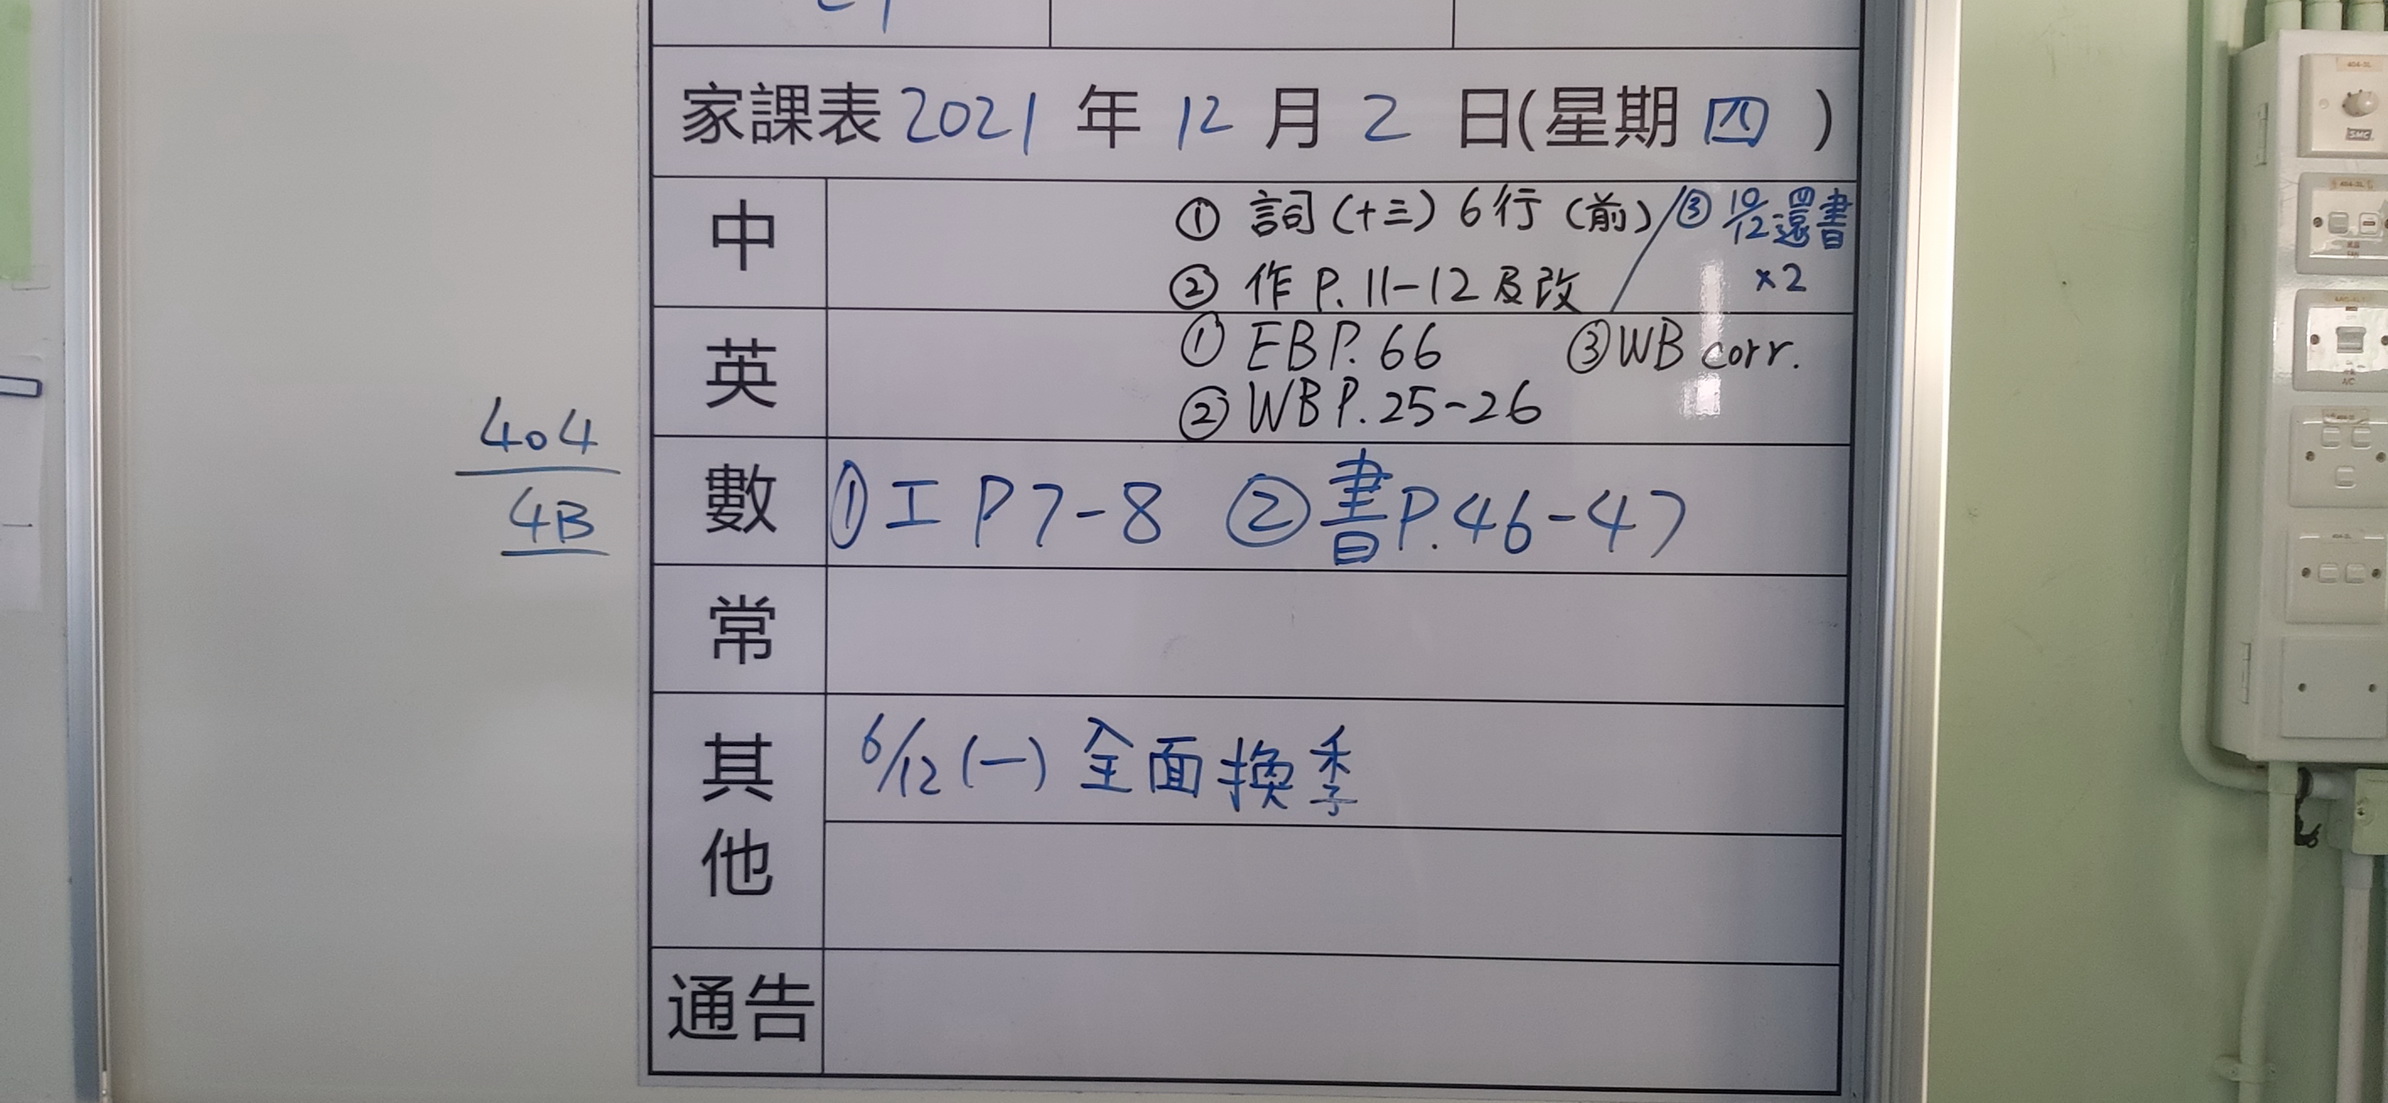 家課表 2021 年 12 月 2 日(星期 四 )
中
① 詞(十三) 6行 (前) / ③ 10/12 還書
② 作 P. 11-12 及改
×2
英
① EB P. 66 ③ WB corr.
② WB P. 25-26
數 ① 工 P7-8 ② 書 P. 46-47
常
其他
6/12 (一) 全面換季
通告
404
4B
SMC